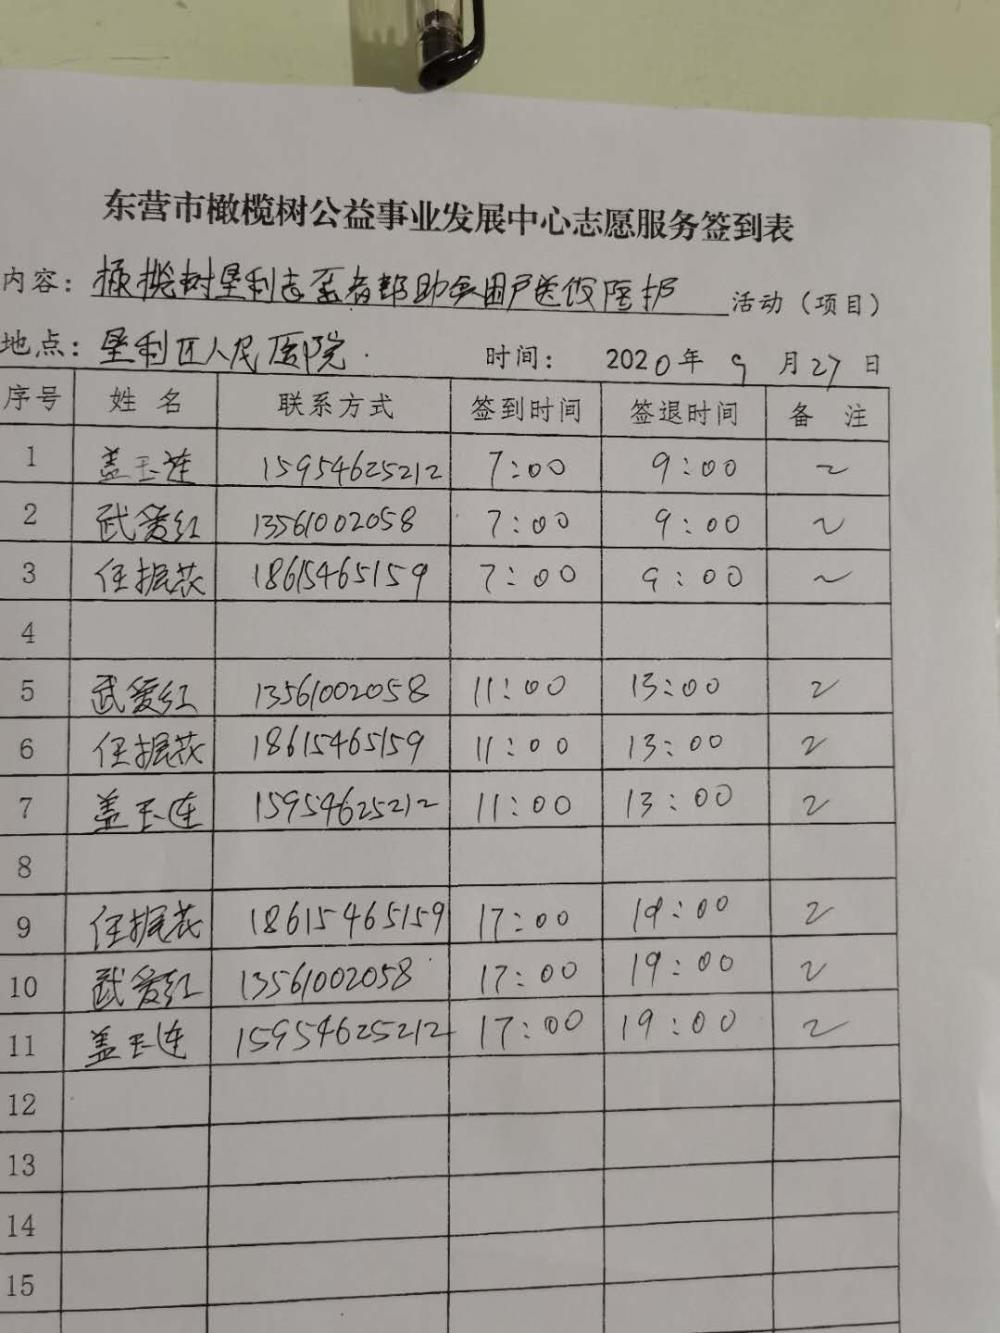 东营市橄榄树公益事业发展中心志愿服务签到表
内容：橄榄树垦利志愿者帮助贫困户送饭陪护 活动（项目）
地点：垦利区人民医院. 时间： 2020年 9 月27日
序号 姓名 联系方式 签到时间 签退时间 备 注
1 盖玉连 15954625212 7:00 9:00 2
2 武爱红 13561002058 7:00 9:00 2
3 任振花 18615465159 7:00 9:00 2
4
5 武爱红 13561002058 11:00 13:00 2
6 任振花 18615465159 11:00 13:00 2
7 盖玉连 15954625212 11:00 13:00 2
8
9 任振花 18615465159 17:00 19:00 2
10 武爱红 13561002058 17:00 19:00 2
11 盖玉连 15954625212 17:00 19:00 2
12
13
14
15